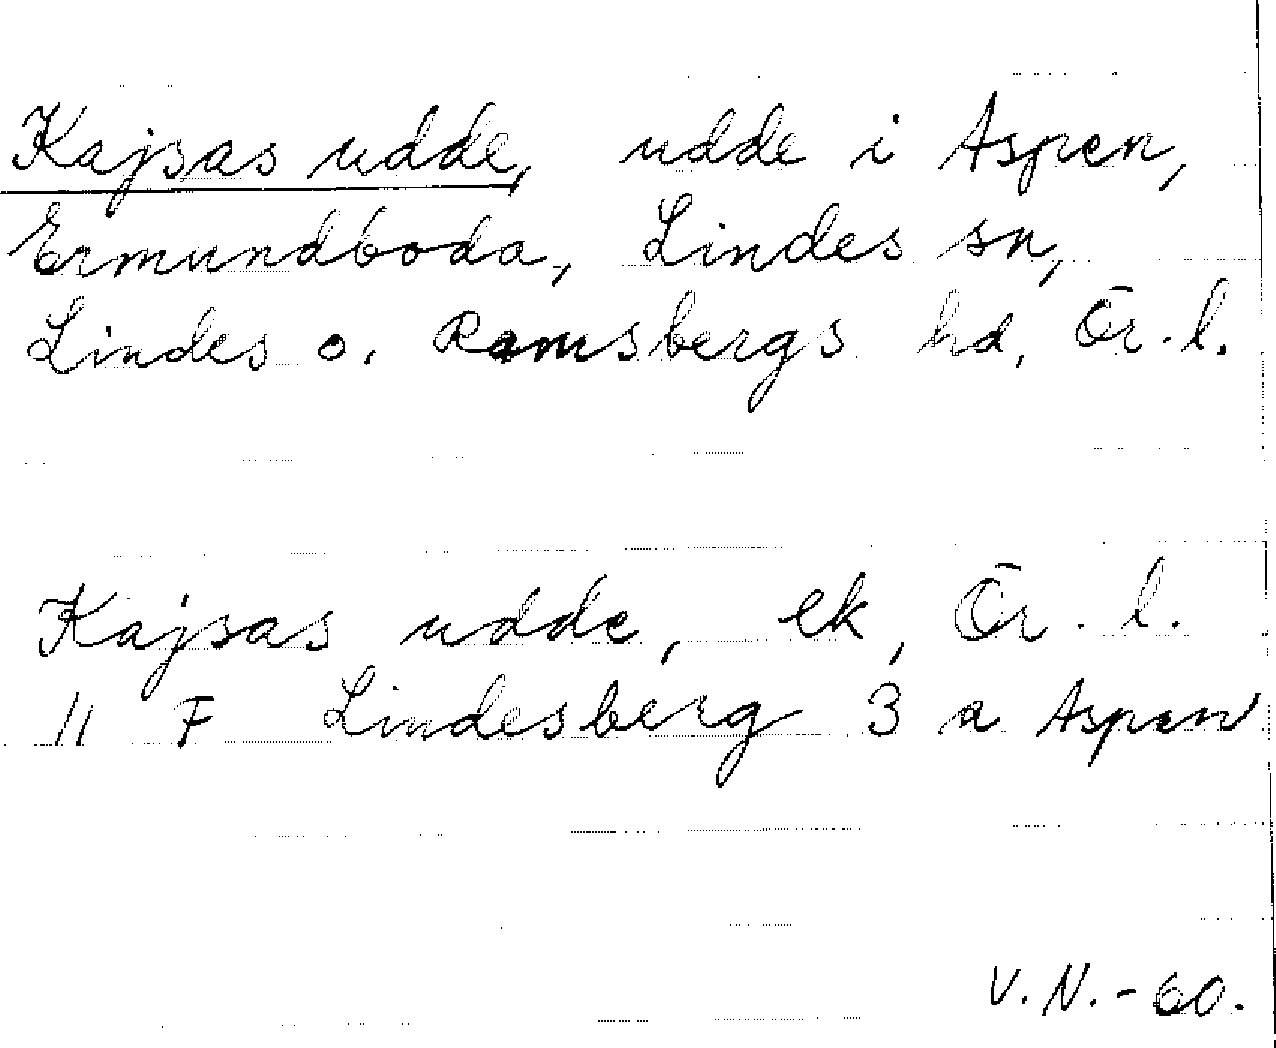 Kajsas udde, udde i Aspen,
Ermundboda, Lindes sn,
Lindes o. Ramsbergs hd, Ör. l.
Kajsas udde, ek, Ör. l.
11 F Lindesberg 3 a Aspen
V. N. - 60.